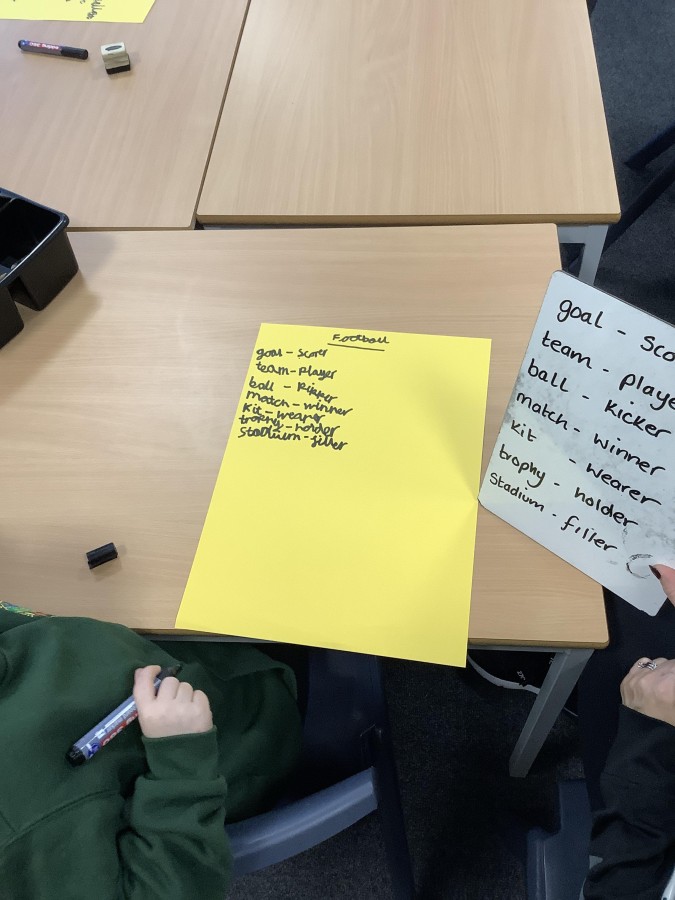 Football
goal - Scorer
team - Player
ball - kikker
match - winner
kit - wearer
trophy - holder
Stadium - filler
goal - Sco
team - playe
ball - kicker
match - winner
kit - wearer
trophy - holder
Stadium - filler